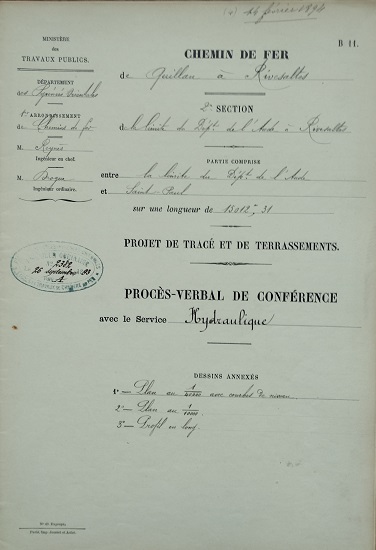 26 février 1894
B 11.
MINISTÈRE
des
TRAVAUX PUBLICS.
DÉPARTEMENT
des Pyrénées Orientales
1er ARRONDISSEMENT
de Chemins de fer
M.
Ingénieur en chef.
M.
Ingénieur ordinaire.
25 septembre 93
CHEMIN DE FER
de Quillan à Rivesaltes
2e SECTION
de la limite du Dépt de l'Aude à Rivesaltes
PARTIE COMPRISE
entre la limite du Dépt de l'Aude
et Saint-Paul
sur une longueur de 13012m,31
PROJET DE TRACÉ ET DE TERRASSEMENTS.
PROCÈS-VERBAL DE CONFÉRENCE
avec le Service Hydraulique
DESSINS ANNEXÉS
1° — Plan au avec courbes de niveau.
2° — Plan au 1/1000.
3° — Profil en long.